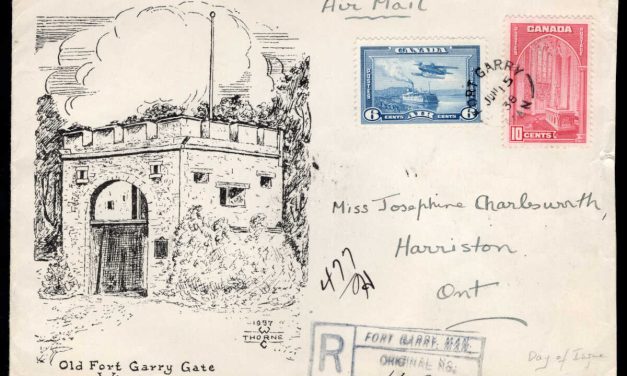 Air Mail
CANADA
POSTES POSTAGE
6 CENTS AIR CENTS 6
CANADA
POSTES POSTAGE
10 CENTS
FORT GARRY
JUN 15
38
MAN
Miss Josephine Charlesworth,
Harriston.
Ont
477
1937
W
THORNE
C
Old Fort Garry Gate
R
FORT GARRY, MAN.
ORIGINAL No.
Day of Issue